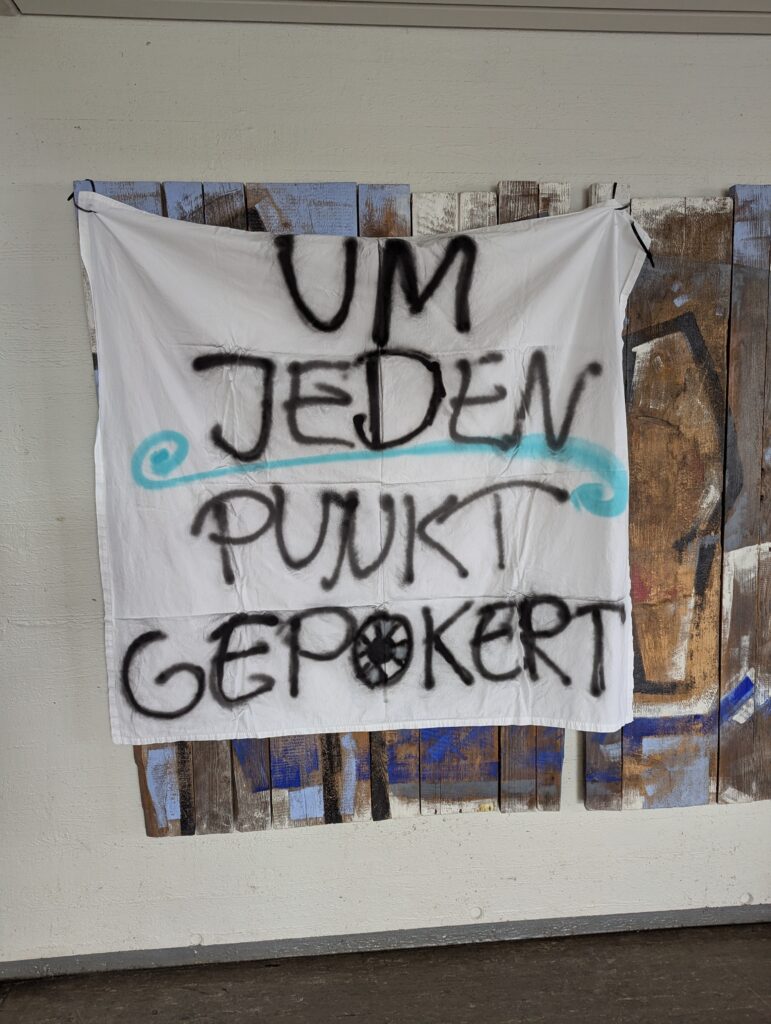 UM
JEDEN
PUNKT
GEPOKERT